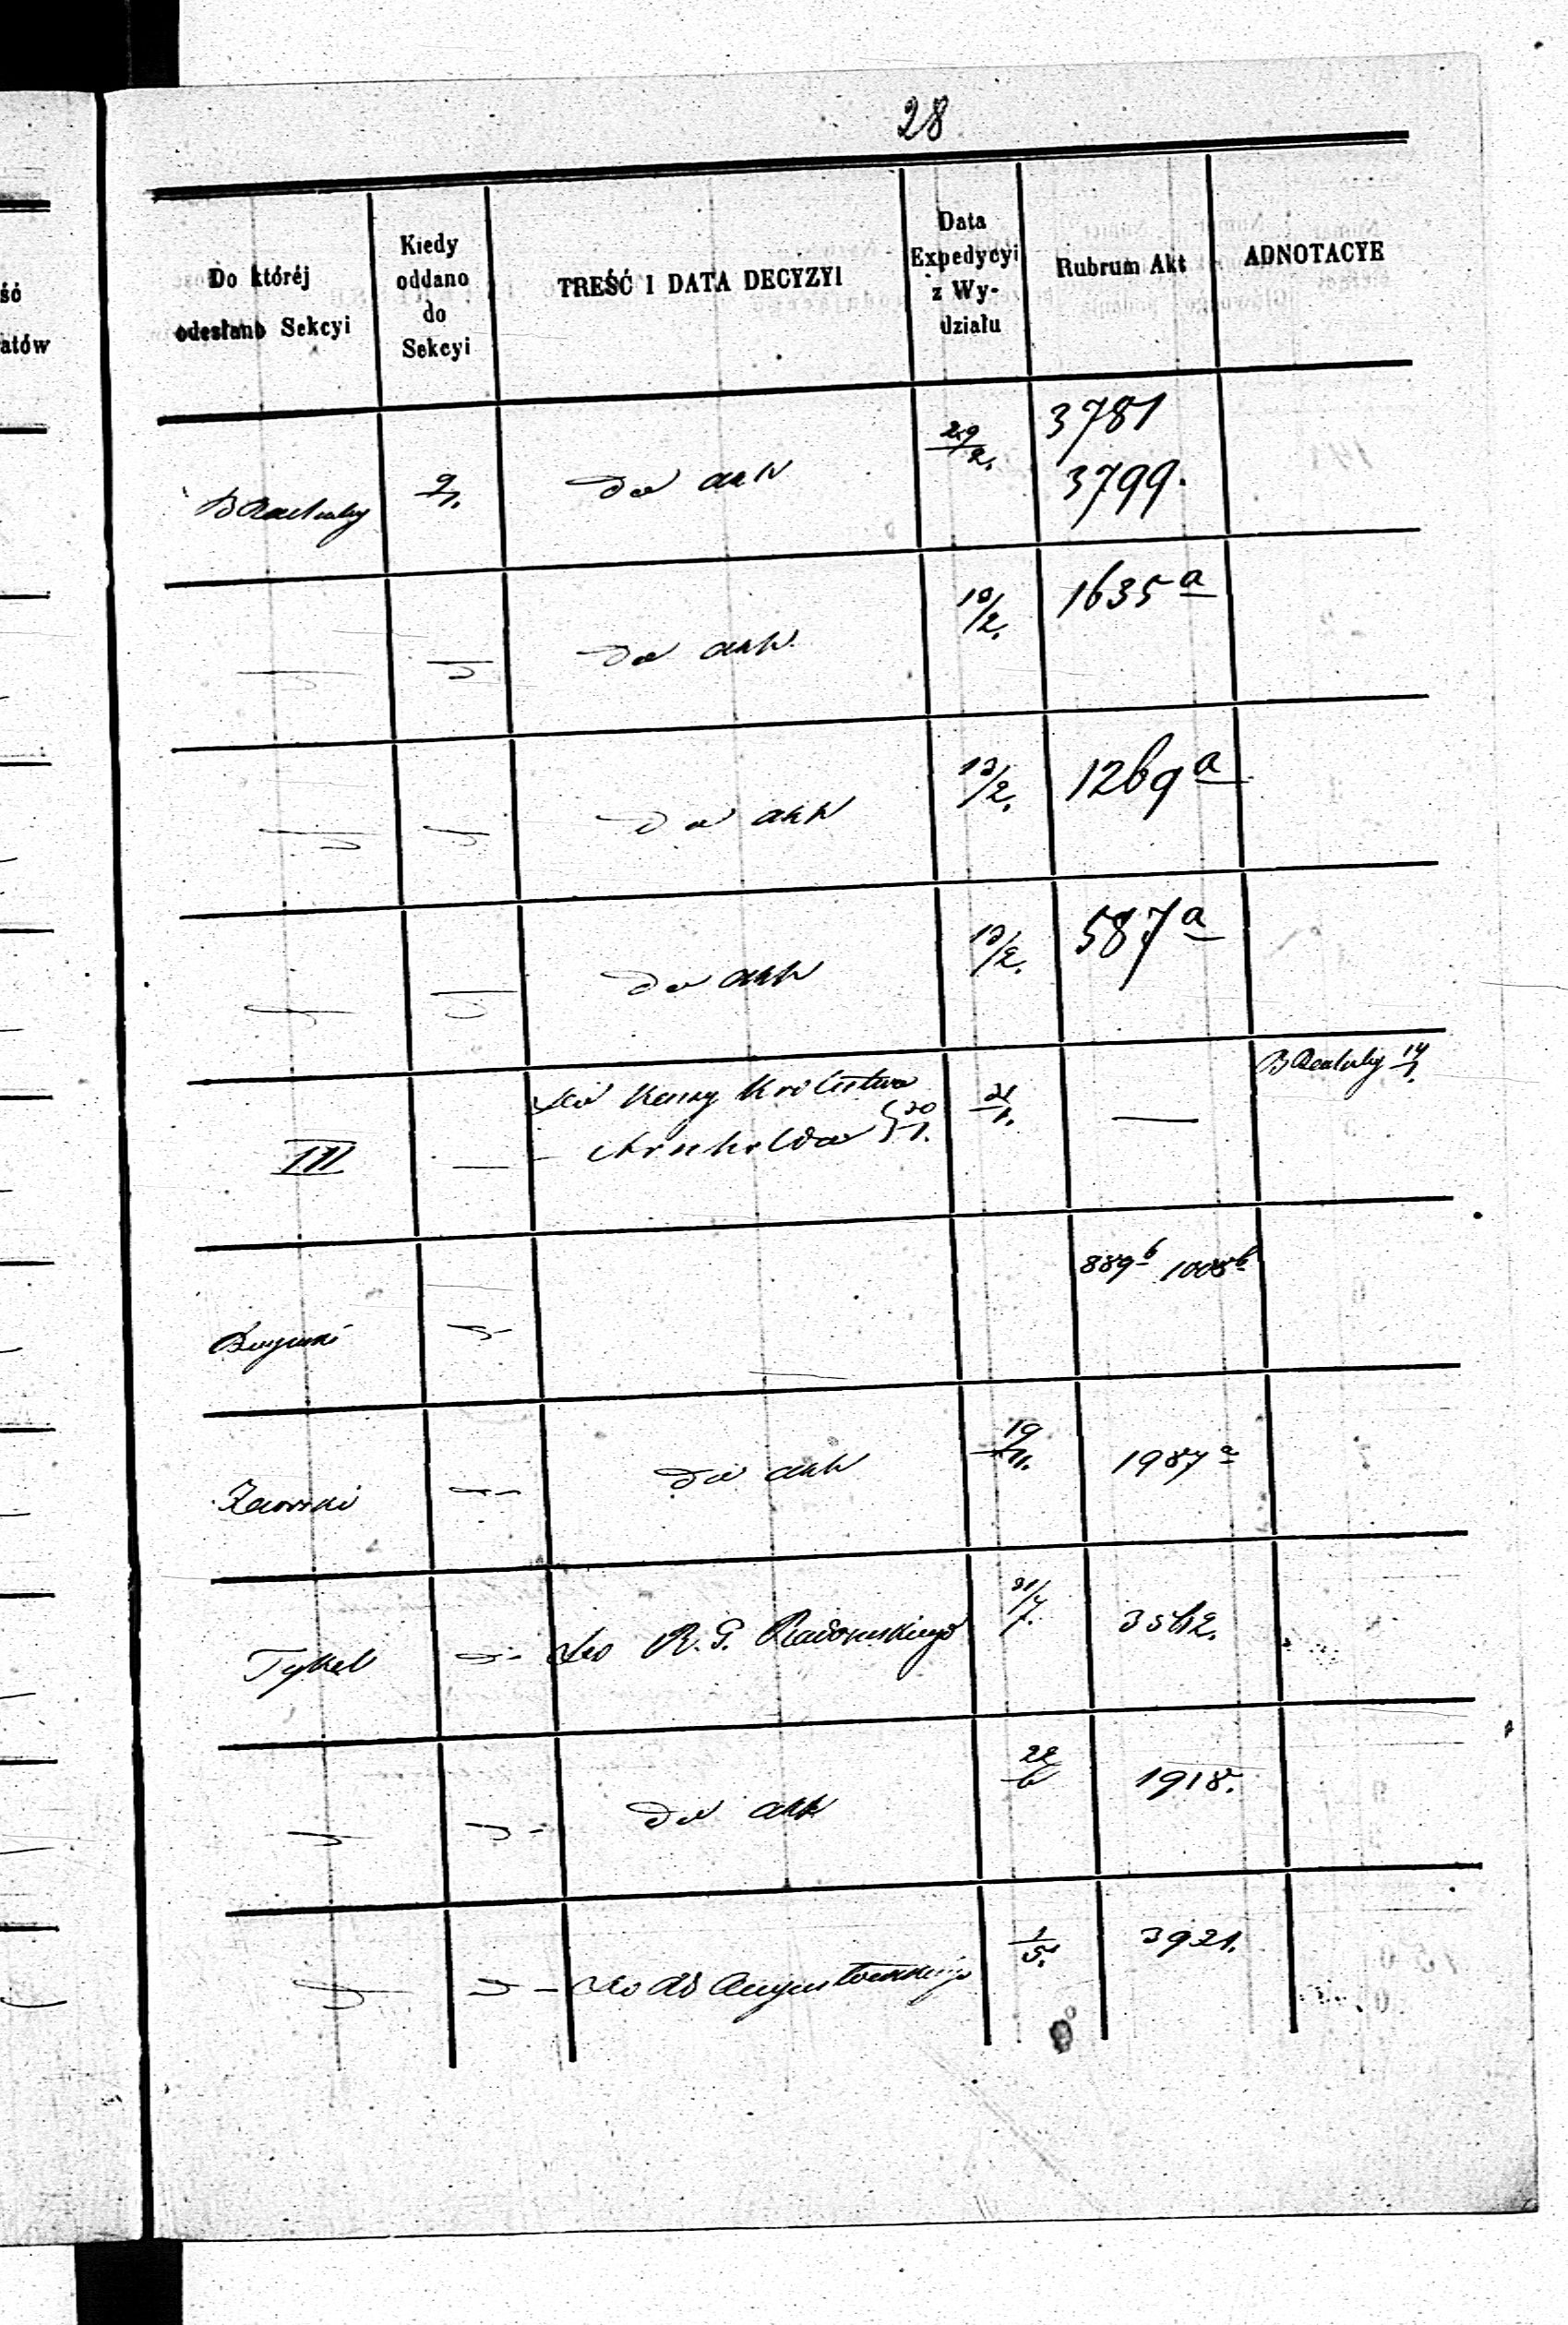 28
Do któréj
odesłano Sekcyi
Kiedy
oddano
do
Sekcyi
TREŚĆ I DATA DECYZYI
Data
Expedycyi
z Wy-
działu
Rubrum Akt
ADNOTACYE
ść
atów
9/1.
do akt
29/2.
3781
3799.
do akt
10/2.
1635 a
do akt
13/2.
1269 a
do akt
13/2.
587 a
III
Do Kassy Królestwa
20/1.
21/1.
14/1.
889 b 1008 b
do akt
19/11.
1987 a
Tykel
Do R. G. Radomskiego
31/7.
3562.
do akt
22/6
1918.
Do Augustowskiego
1/5.
3921.